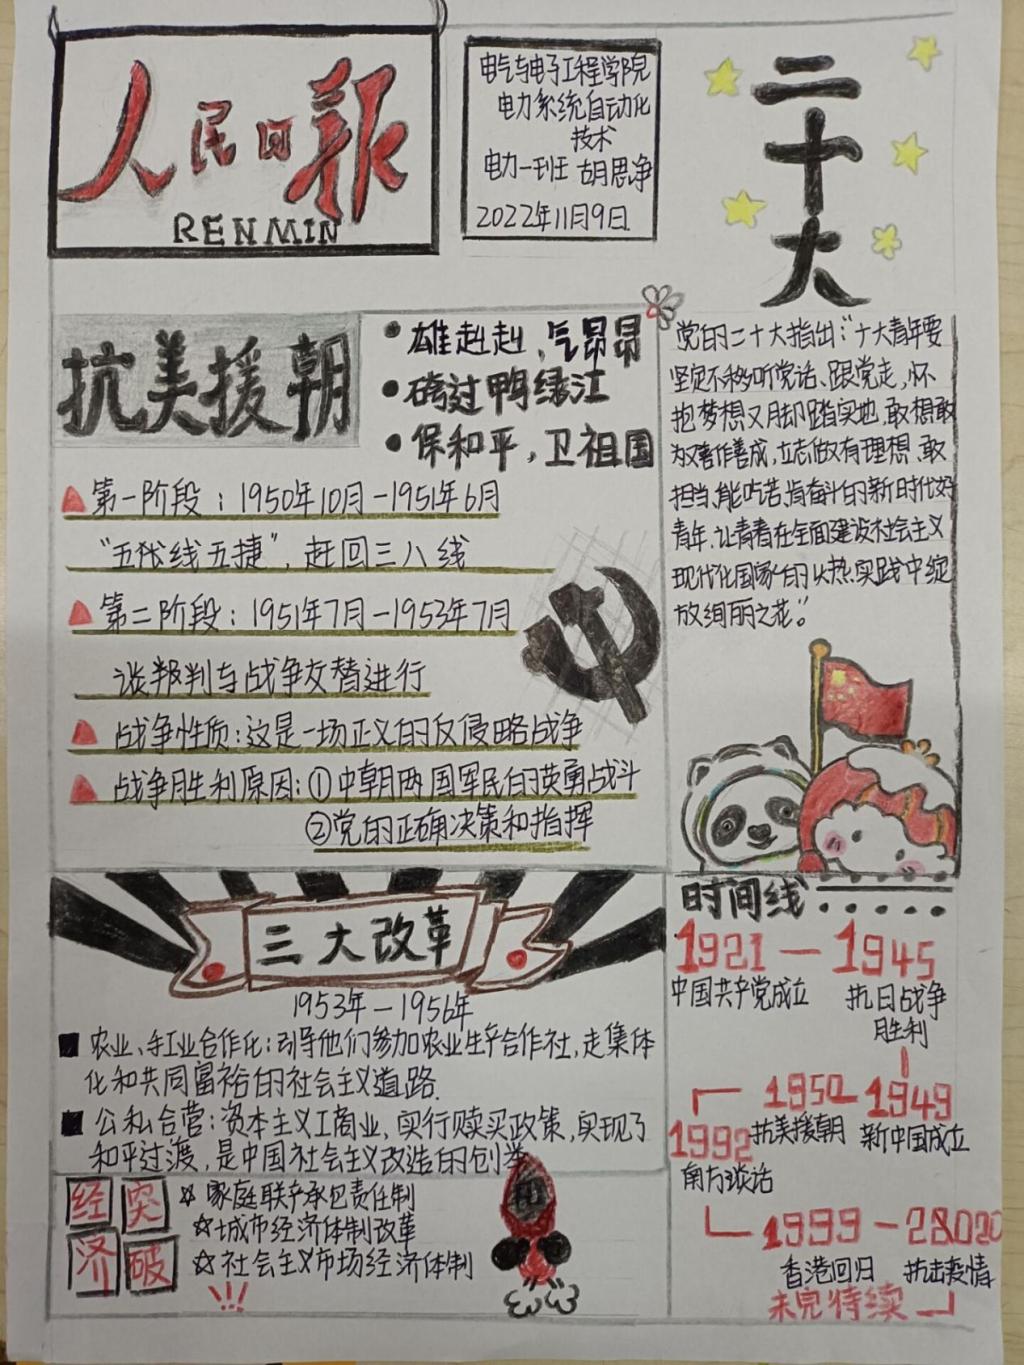 人民日报
RENMIN
电气与电子工程学院
电力系统自动化
技术
电力一班 胡思净
2022年11月9日
二十大
抗美援朝
• 雄赳赳，气昂昂
• 跨过鸭绿江
• 保和平，卫祖国
第一阶段：1950年10月-1951年6月
"五战线五捷"，赶回三八线
第二阶段：1951年7月-1953年7月
谈判与战争交替进行
战争性质：这是一场正义的反侵略战争
战争胜利原因：①中朝两国军民的英勇战斗
②党的正确决策和指挥
党的二十大指出："广大青年要
坚定不移听党话、跟党走，怀
抱梦想又脚踏实地，敢想敢
为又善作善成，立志做有理想、敢
担当、能吃苦、肯奋斗的新时代好
青年，让青春在全面建设社会主义
现代化国家的火热实践中绽
放绚丽之花。"
三大改革
1953年—1956年
农业、手工业合作化：引导他们参加农业生产合作社，走集体
化和共同富裕的社会主义道路.
公私合营：资本主义工商业，实行赎买政策，实现了
和平过渡，是中国社会主义改造的创举
经济突破
☆ 家庭联产承包责任制
☆城市经济体制改革
☆社会主义市场经济体制
!!!
时间线
1921 — 1945
中国共产党成立 抗日战争
胜利
1950 1949
1992 抗美援朝 新中国成立
南方谈话
1999 —
香港回归 抗击疫情
未完待续